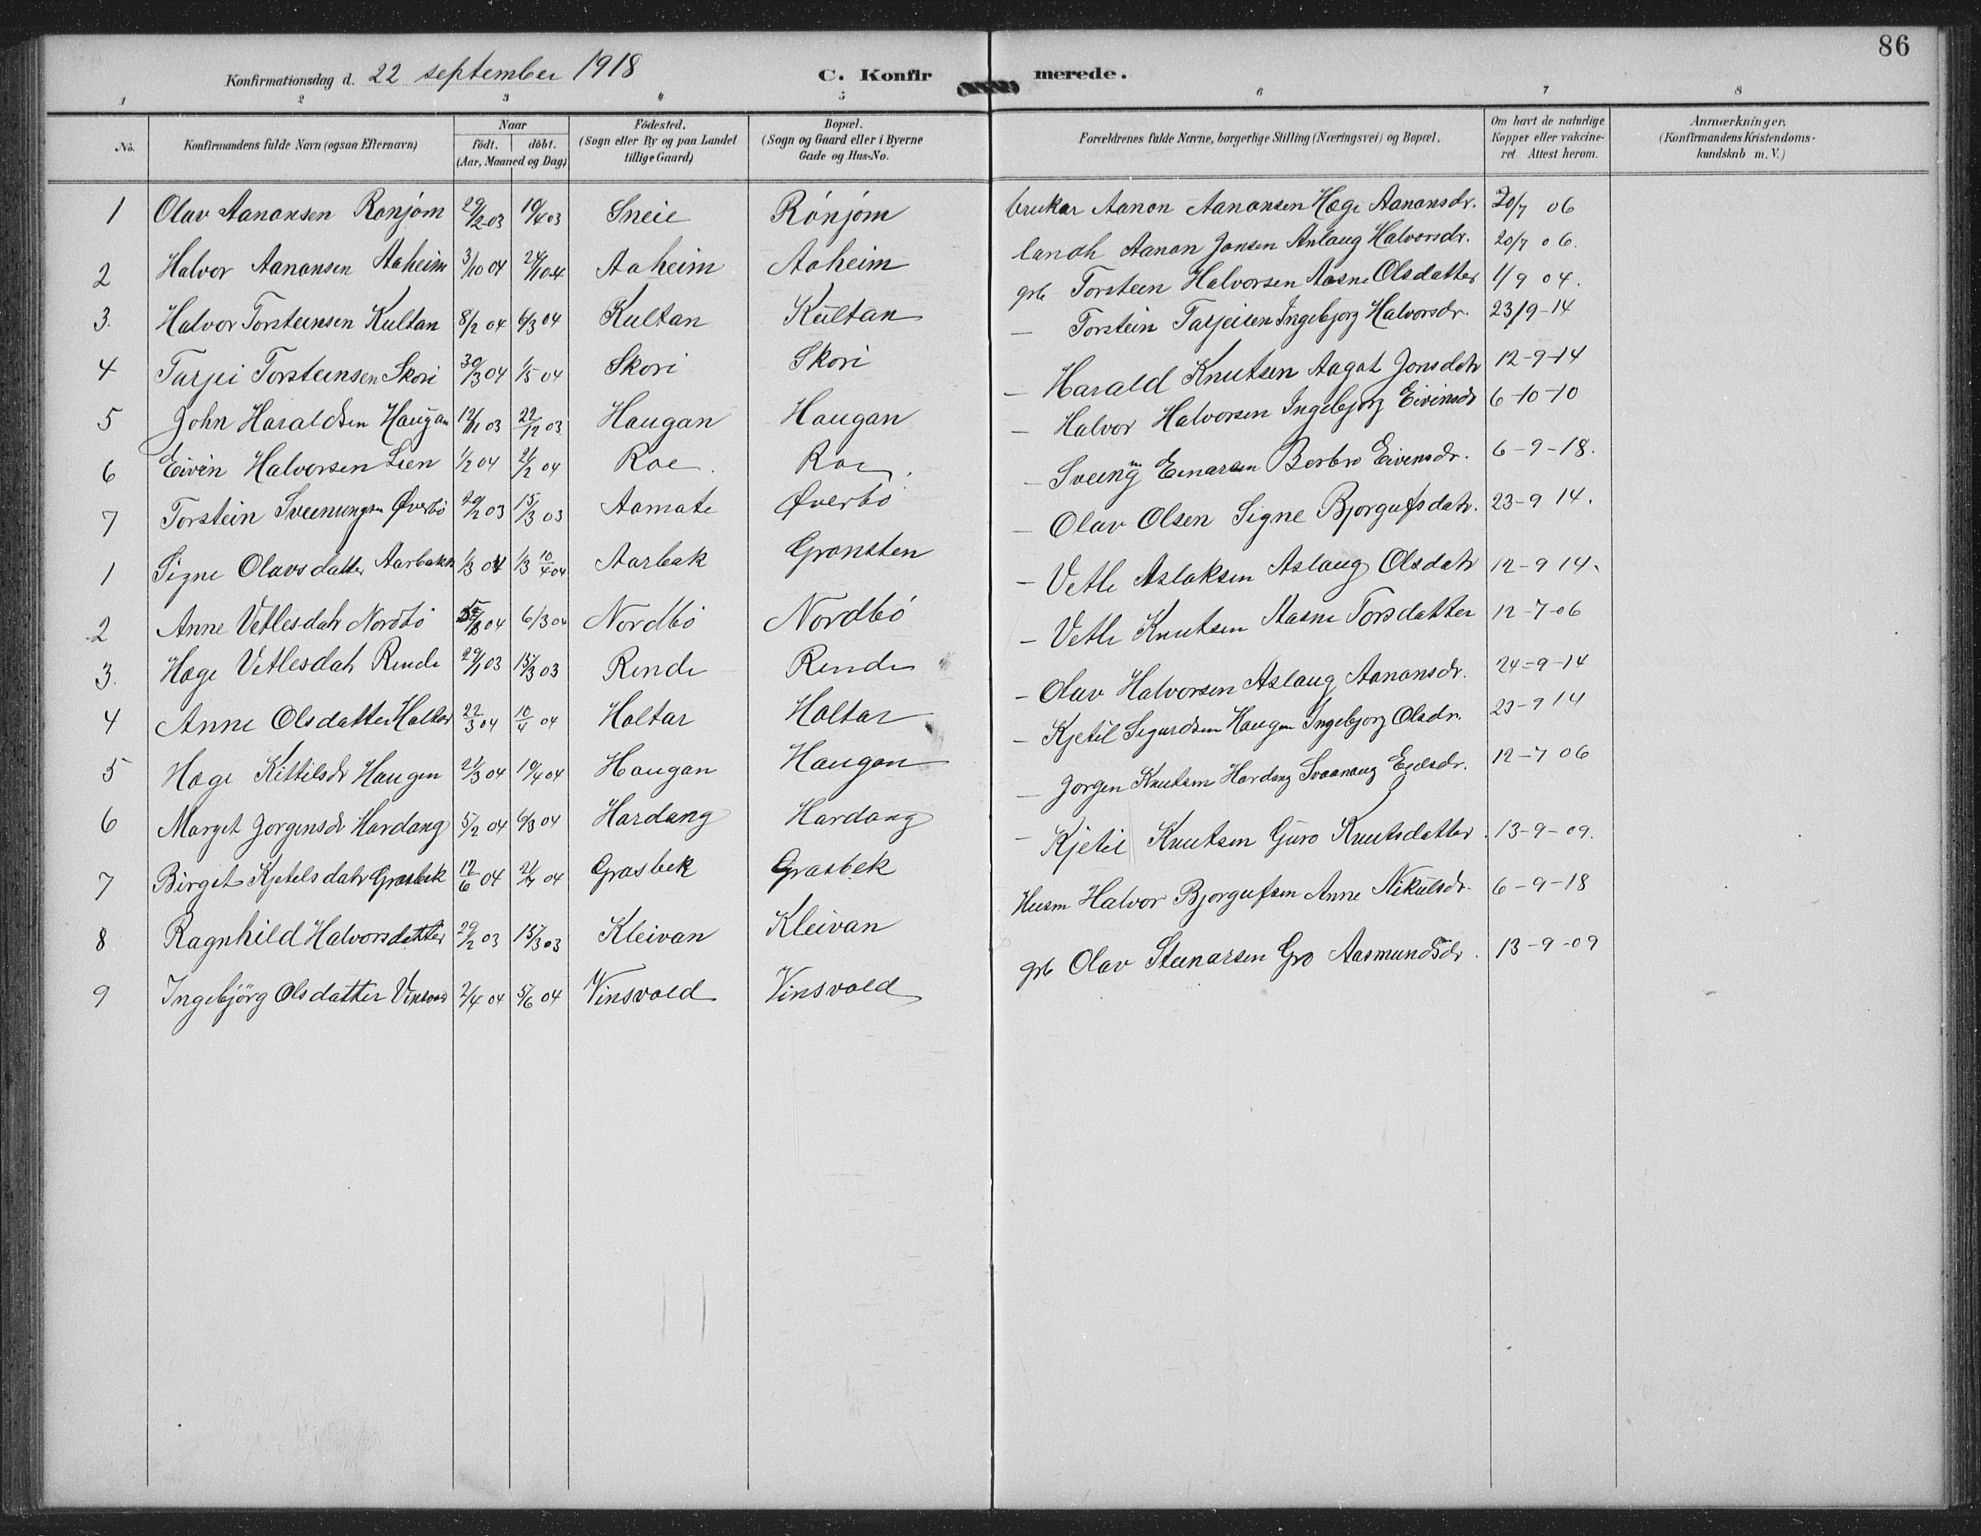 86
Konfirmationsdag d. 22 september 1918 C. Konfirmerede.
1 2 3 4 5 6 7 8
No. Konfirmandens fulde Navn (ogsaa Efternavn) Naar födt. döbt. (Aar, Maaned og Dag) Födested. (Sogn eller By og paa Landet tillige Gaard) Bopæl. (Sogn og Gaard eller i Byerne Gade og Hus-No. Forældrenes fulde Navne, borgerlige Stilling (Næringsvei) og Bopæl. Om havt de naturlige Kopper eller vakcineret Attest herom. Anmærkninger. (Konfirmandens Kristendomskundskab m. V.)
1 Olav Aanonsen Rønjom 29/12 03 19/4 03 Sneie Rónjom brukar Aanon Aanonsen Hæge Aanonsdr. 20/7 06
2 Halvor Aanonsen Aaheim 3/10 04 24/11 04 Aaheim Aaheim landh Aanon Jonsen Anlaug Halvorsdr. 20/7 06.
3. Halvor Torsteinsen Kultan 8/2 04 6/3 04 Kultan Kultan grb Torstein Halvorsen Aasne Olsdatter 1/9 04.
4 Tarjei Torsteinsen Skori 30/3 04 1/5 04 Skori Skori — Torstein Tarjeisen Ingebjorg Halvorsdr. 23/9-14
5 John Haraldsen Haugan 12/11 03 22/12 03 Haugan Haugan — Harald Knutsen Aagot Jonsdatr 12-9-14
6 Eivin Halvorsen Lien 1/2 04 21/2 04 Roe. Roe. — Halvor Halvorsen Ingebjorg Eivinsdr 6-10-10
7 Torstein Sveinungsen Øverbö 20/2 03 15/3 03 Aamate Øverbö — Sveing Einarsen Berbro Eivinsdr. 6-9-18.
1 Signe Olavsdatter Aarbakk 1/3 04 1/3 10/4 04 Aarbak Gronsten — Olav Olsen Signe Bjorgufsdatr. 23-9 14.
2 Anne Vetlesdatr Nordbö 04 6/3 04 Nordbö Nordbó — Vetle Aslaksen Aslaug Olsdatr 12-9 14.
3. Hæge Vetlesdatr Rende 29/1 03 15/3 03 Rende Rende — Vetle Knutsen Aasne Torsdatter 12-7-06
4 Anne Olsdatter Holtar 22/3 04 10/4 04 Holtar Holtar — Olav Halvorsen Aslaug Aanonsdr. 24-9-14
5 Hæge Kittilsdr Haugen 21/3 04 19/4 04 Haugan Haugan — Kjetil Sigurdsen Haugen Ingebjorg Olsdr. 23-9 14
6 Marget Jorgensdr Hardang 5/2 04 6/3 04 Hardang Hardang — Jorgen Knutsen Hardang Svaanaug 12-7 06
7 Birget Kjetelsdatr Grasbek 12/6 04 04 Grasbek Grasbek — Kjetil Knutsen Guro Knutsdatter. 13-9-09.
8 Ragnhild Halvorsdatter 20/2 03 15/3 03 Kleivan Kleivan Husm Halvor Bjorgufsen Anne Nikulsdr. 6-9-18
9 Ingebjörg Olsdatter 2/4 04 5/6 04 Vinsvold Vinsvold grb Olav Steinarsen Gro Aasmundsdr. 13-9-09